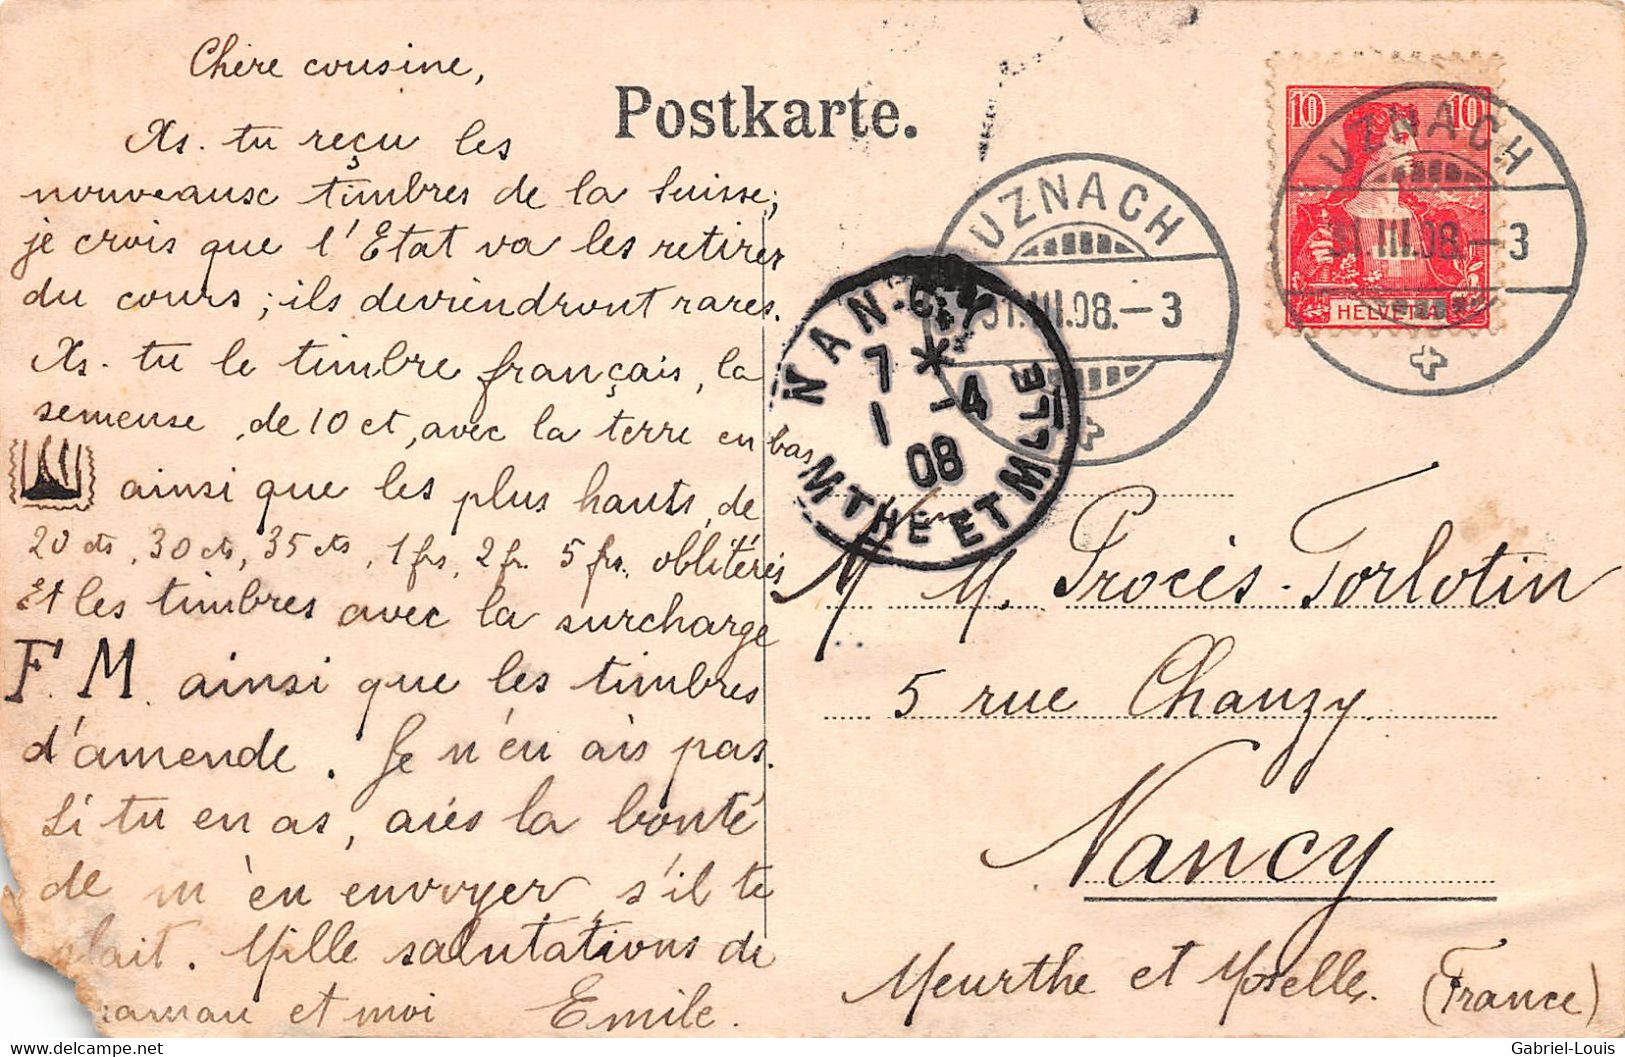 Chère cousine,
As-tu reçu les
nouveaux timbres de la Suisse;
je crois que l'Etat va les retirer
du cours; ils deviendront rares.
As-tu le timbre français, la
semeuse, de 10 ct, avec la terre en bas
ainsi que les plus hauts, de
20 cts, 30 cts, 35 cts, 1 frs, 2 fr. 5 frs. oblitérés
Et les timbres avec la surcharge
F. M. ainsi que les timbres
d'amende. Je n'en ais pas.
Si tu en as, aies la bonté
de m'en envoyer, s'il te
plait. Mille salutations de
maman et moi Emile.
Postkarte.
UZNACH
31.III.08.-3
NANCY
7 * 1 - 4
08
MTHE ET MLLE
10 10
HELVETIA
UZNACH
31.III.08.-3
M. Procès-Torlotin
5 rue Chanzy.
Nancy
Meurthe et Moselle. (France)
Gabriel-Louis
www.delcampe.net